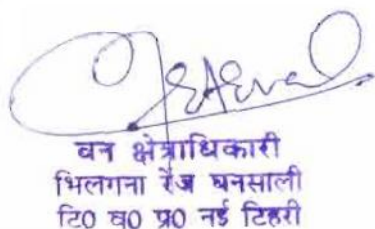 वन क्षेत्राधिकारी
भिलंगना रेंज घनसाली
टि0 व0 प्र0 नई टिहरी